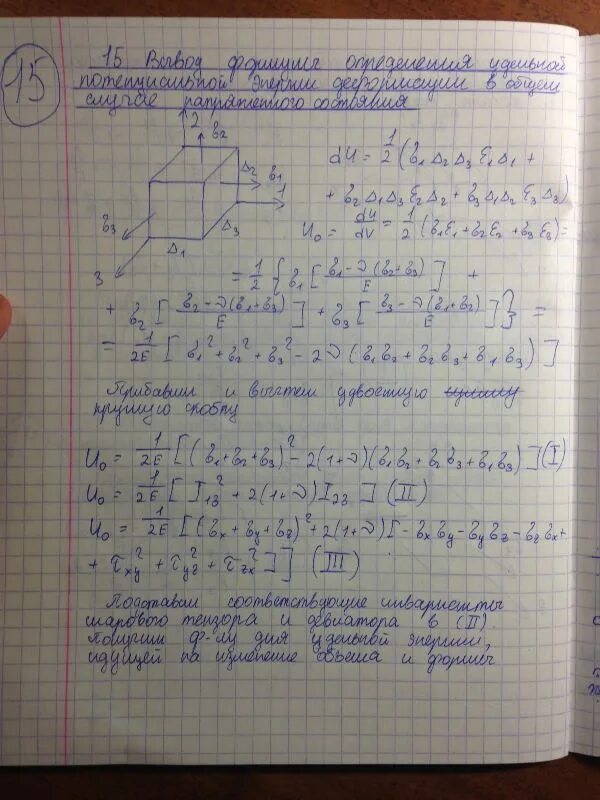 15
15 Вывод формулы определения удельной
потенциальной энергии деформации в общем
случае напряженного состояния
2
σ₂
Δ₂ σ₁
1
σ₃
Δ₃
Δ₁
3
dU = 1/2 (σ₁ Δ₂ Δ₃ ε₁ Δ₁ +
+ σ₂ Δ₁ Δ₃ ε₂ Δ₂ + σ₃ Δ₁ Δ₂ ε₃ Δ₃)
U₀ = dU/dV = 1/2 (σ₁ε₁ + σ₂ε₂ + σ₃ε₃) =
= 1/2 { σ₁ [ (σ₁ - ν(σ₂+σ₃))/E ] +
+ σ₂ [ (σ₂ - ν(σ₁+σ₃))/E ] + σ₃ [ (σ₃ - ν(σ₁+σ₂))/E ] } =
= 1/2E [ σ₁² + σ₂² + σ₃² - 2ν (σ₁σ₂ + σ₂σ₃ + σ₁σ₃) ]
Прибавим и вычтем удвоенную
круглую скобку
U₀ = 1/2E [(σ₁+σ₂+σ₃)² - 2(1+ν)(σ₁σ₂ + σ₂σ₃ + σ₁σ₃)] (I)
U₀ = 1/2E [ I₁σ² + 2(1+ν) I₂σ ] (II)
U₀ = 1/2E [(σx + σy + σz)² + 2(1+ν)[ - σxσy - σyσz - σzσx +
+ τxy² + τyz² + τzx² ]] (III)
Подставим соответствующие инварианты
шарового тензора и девиатора в (II).
Получим ф-лу для удельной энергии,
идущей на изменение объема и формы